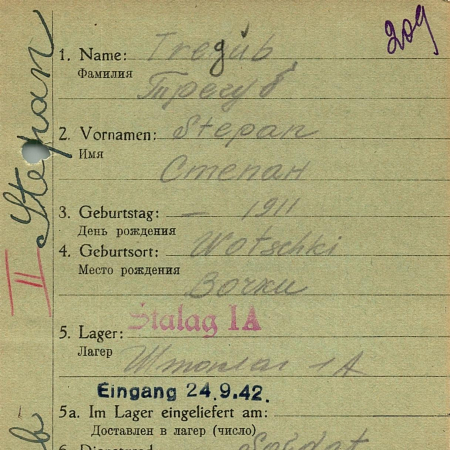 209
Stepan
II
1. Name: Tregub
Фамилия
Трегуб
2. Vornamen: Stepan
Имя
Степан
3. Geburtstag: — 1911
День рождения
4. Geburtsort: Wotschki
Место рождения
Вочки
5. Lager: Stalag IA
Лагер
Шталаг 1А
Eingang 24.9.42.
5a. Im Lager eingeliefert am:
Доставлен в лагер (число)
Soldat